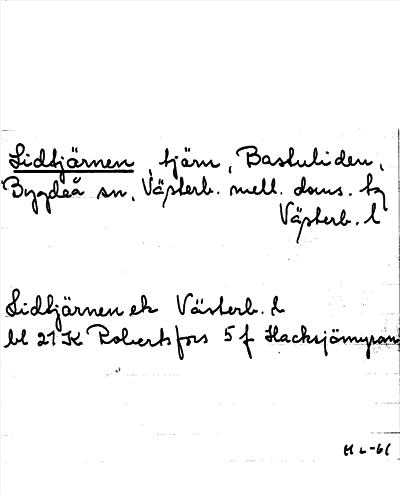 Lidtjärnen, tjärn, Bastuliden,
Bygdeå sn, Västerb. mell. doms. tg
Västerb. l
Lidtjärnen ek Västerb. l
bl 21 K Robertsfors 5 f Hacksjömyran
H L-61